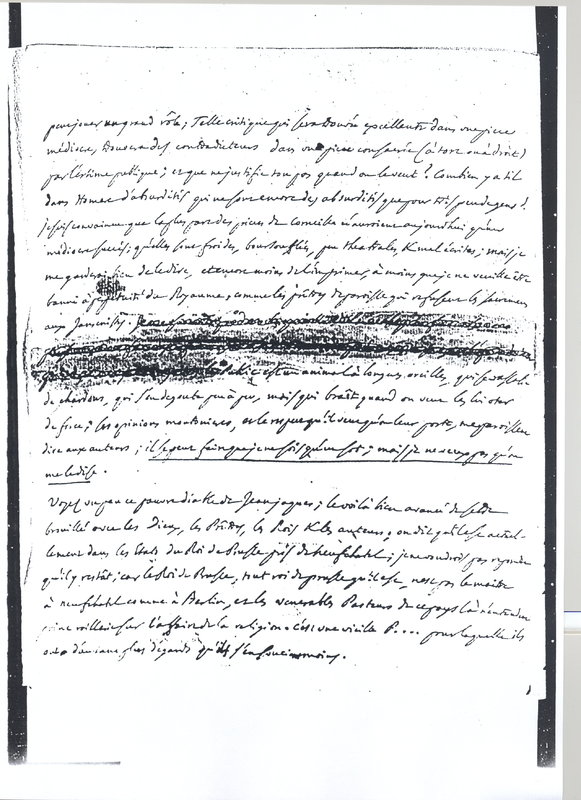 pour jouer un grand rôle ; Telle critique qui sera trouvée excellente dans une piece
médiocre, trouvera des contradicteurs dans une piece consacrée (à tort ou à droit)
par l'estime publique ; et que ne justifie t on pas quand on le veut ? Combien y a til
dans Homere d'absurdités qui ne sont encore des absurdités que pour très peu de gens ?
Je suis convaincu que la plus part des pieces de Corneille n'auroient aujourdhui qu'un
médiocre succès ; qu'elles sont froides, boursouflées, peu theatrales & mal écrites ; mais je
me garderai bien de le dire, et encore moins de l'imprimer, à moins que je ne veuille être
banni à perpetuité du Royaume, comme les prêtres de paroisse qui refusent les sacremens
aux Jansenistes.
c'est un animal à longues oreilles, qui se rassasie
de chardons, qui s'en degoute peu à peu, mais qui brait quand on veut les lui oter
de force ; les opinions moutonieres, et le respect qu'il veut qu'on leur porte, me paroissent
dire aux auteurs ; il se peut faire que je ne sois qu'un sot ; mais je ne veux pas qu'on
me le dise.
Voyez un peu ce pauvre diable de Jean jaques ; le voilà bien avancé de s'etre
brouillé avec les Dieux, les Prêtres, les Rois & les auteurs ; on dit qu'il est actuel-
lement dans les Etats du Roi de Prusse près de Neufchatel ; je ne voudrois pas repondre
qu'il y restât ; car le Roi de Prusse, tout roi de prusse qu'il est, n'est pas le maitre
à neufchatel comme à Berlin, et les venerables Pasteurs de ce pays là n'entendent
raillerie sur l'affaire de la religion. c'est une vieille P.... pour laquelle ils
ont d'autant plus d'égards qu'ils s'en soucient moins.